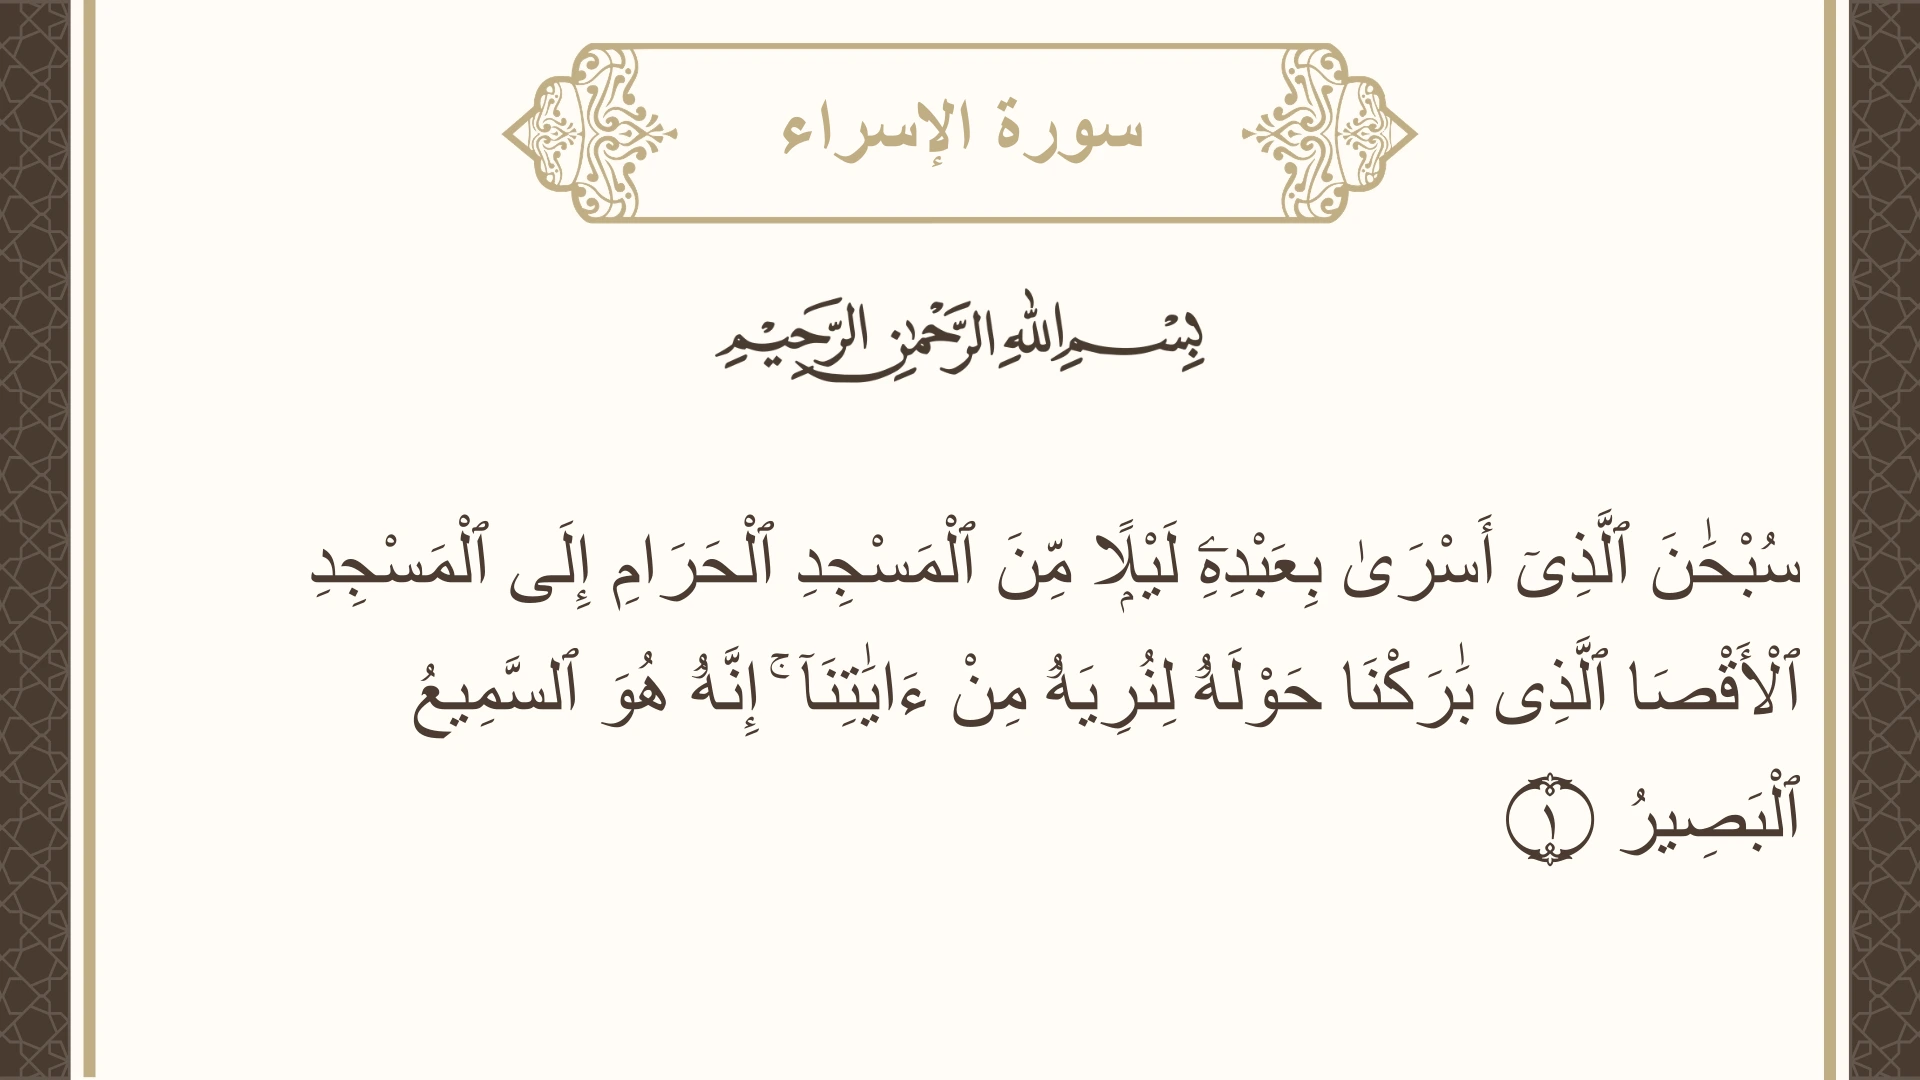 سورة الإسراء
بِسْمِ اللهِ الرَّحْمٰنِ الرَّحِيْمِ
سُبْحَٰنَ ٱلَّذِىٓ أَسْرَىٰ بِعَبْدِهِۦٓ لَيْلًۭا مِّنَ ٱلْمَسْجِدِ ٱلْحَرَامِ إِلَى ٱلْمَسْجِدِ
ٱلْأَقْصَا ٱلَّذِى بَٰرَكْنَا حَوْلَهُۥ لِنُرِيَهُۥ مِنْ ءَايَٰتِنَآ ۚ إِنَّهُۥ هُوَ ٱلسَّمِيعُ
ٱلْبَصِيرُ ١